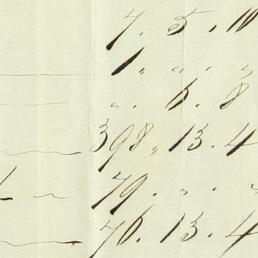 7. 5. 10
1 " " "
". 6. 8
398 " 13. 4
79. " "
76. 13. 4